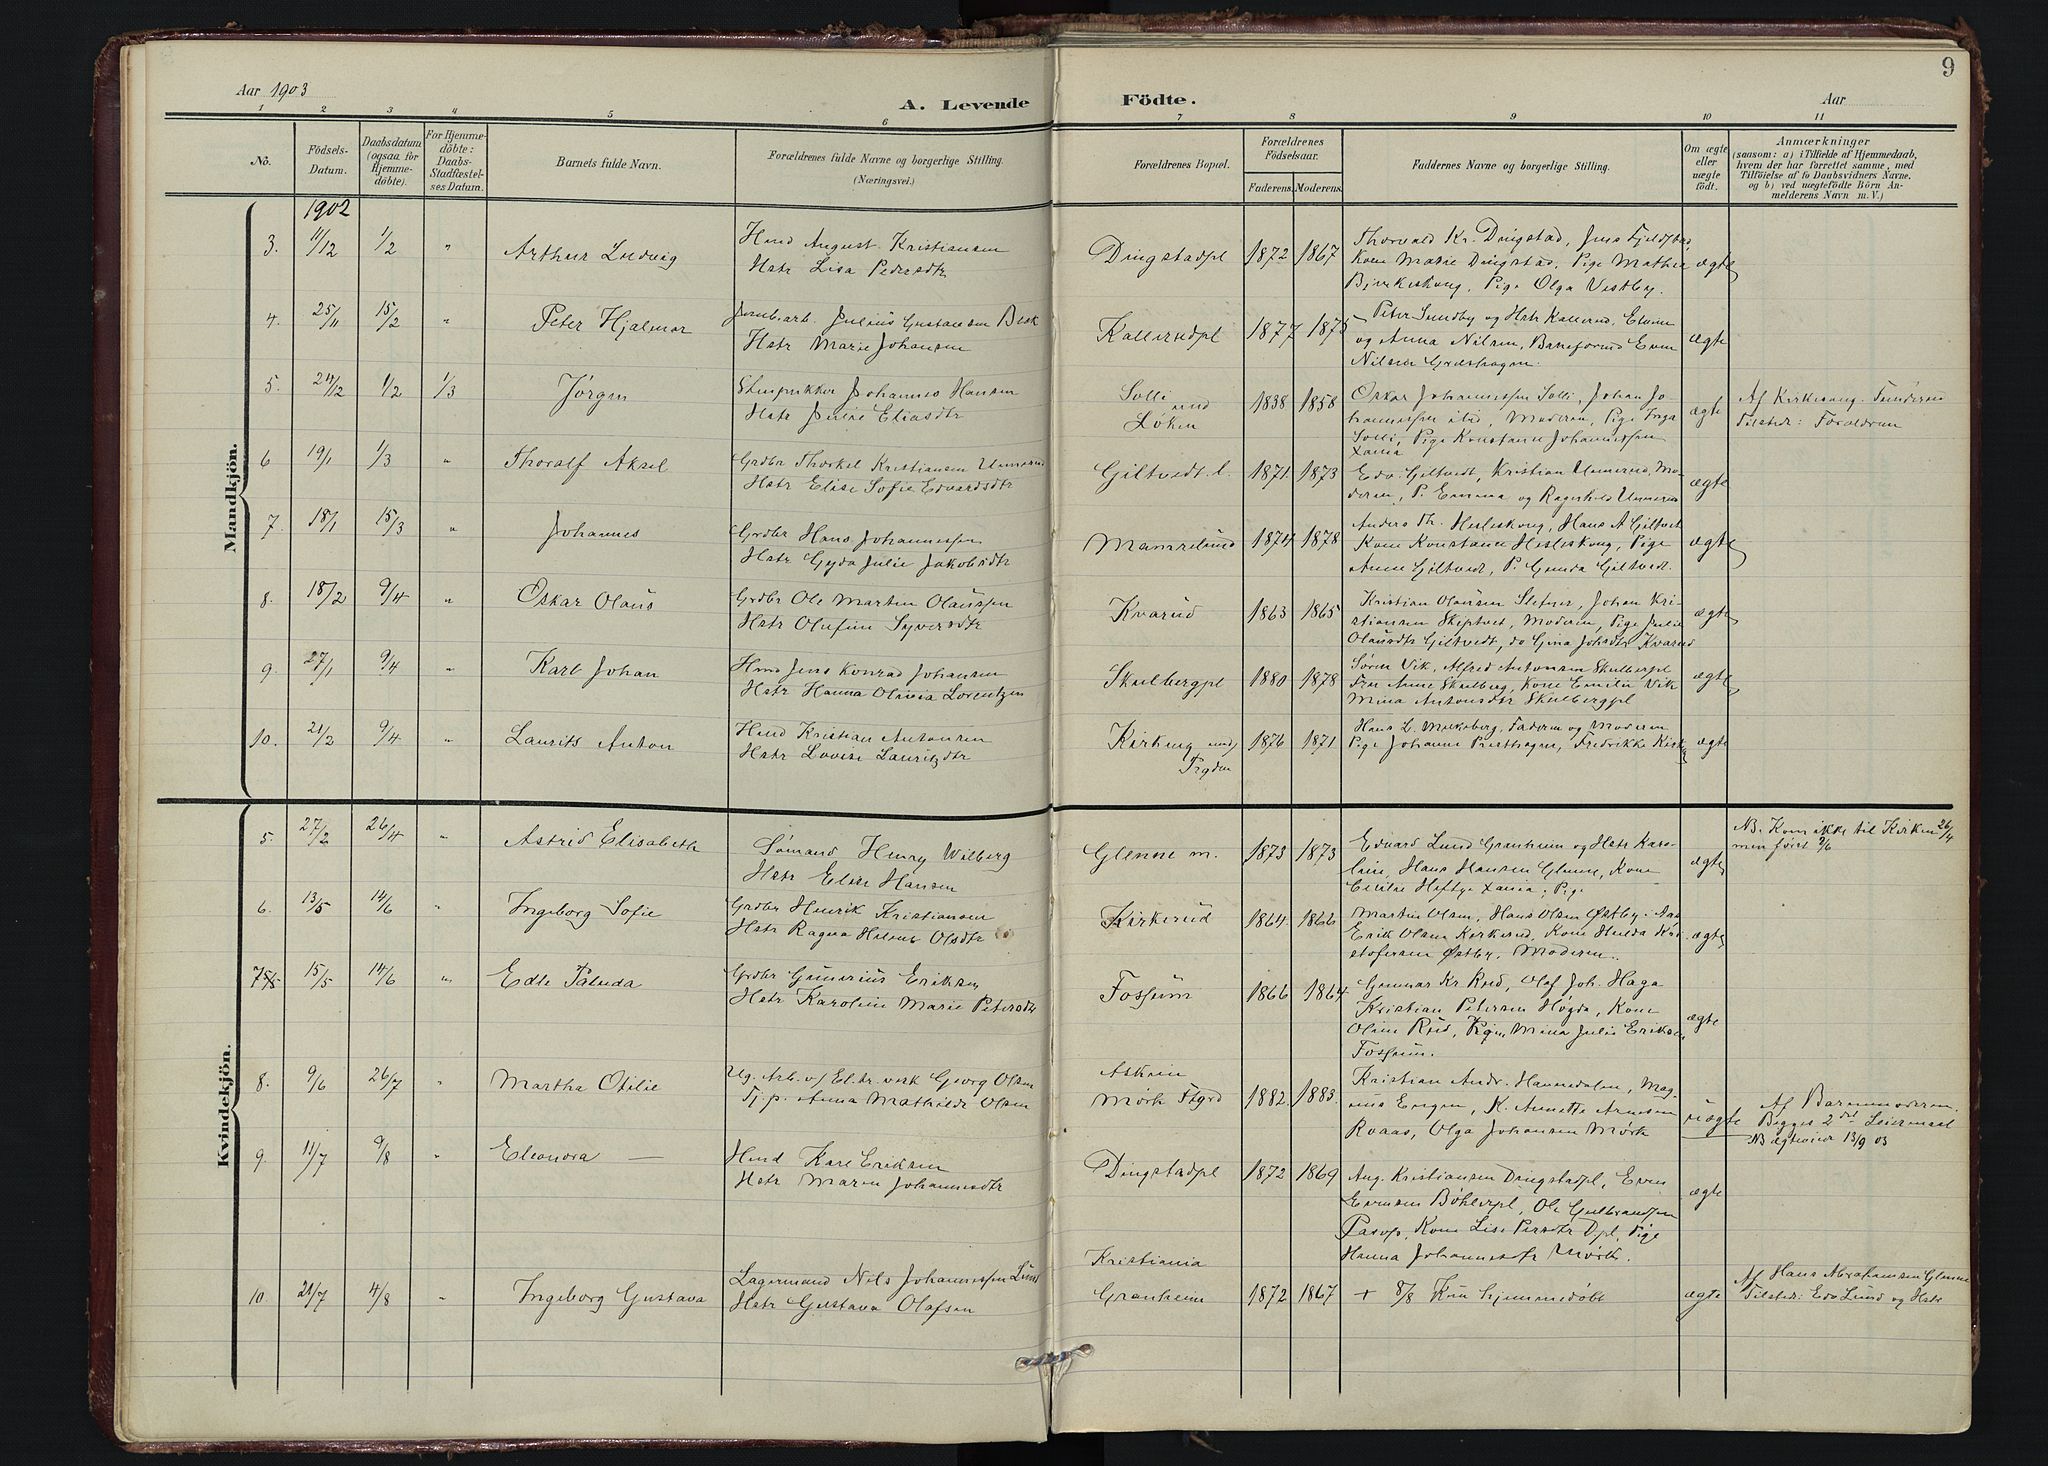 9
Aar 1903
A. Levende Fødte.
Aar
1 2 3 4 5 6 7 8 9 10 11
No.
Födsels-
Datum.
Daabsdatum
(ogsaa for
Hjemme-
döbte).
For Hjemme-
döbte:
Daabs-
Stadfæstel-
ses Datum.
Barnets fulde Navn.
Forældrenes fulde Navne og borgerlige Stilling.
(Næringsvei.)
Forældrenes Bopæl.
Forældrenes
Födselsaar.
Faderens. Moderens.
Faddernes Navne og borgerlige Stilling.
Om ægte
eller
uægte
födt.
Anmærkninger
(saasom: a) i Tilfælde af Hjemmedaab,
hvem der har forrettet samme, med
Tilföielse af to Daabsvidners Navne.
og b) ved uægtefödte Börn An-
melderens Navn m. V.)
Mandkjön.
1902
3. 11/12 1/2 " Arthur Ludvig
Hmd August Kristiansen
Hstr Lisa Pedersdtr
Dingstadpl 1872 1867
Thorvald Kr. Dingstad, Jens Fjeldstad
Kone Marie Dingstad, Pige Mathea
Bjerkeskoug, Pige Olga Vestby.
ægte
4. 25/11 15/2 " Peter Hjalmar
Jernb.arb. Julius Gustavsen Bæk
Hstr Marie Johansen
Kallerudpl 1877 1875
Peter Sundby og Hstr Kallerud, Edvin
og Anna Nilsen, Baneformd Even
Nilsen Græshagen.
ægte
5. 24/12 1/2 1/3 Jørgen
Stenpukker Johannes Hansen
Hstr Julie Eliasdtr
Solli
und
Løken
1838 1858
Oskar Johannessen Solli, Johan Jo-
hannessen ibd, Moderen, Pige Inga
Solli, Pige Konstanse Johannessen
Xania
ægte
Af Kirkesang.
Tilstede: Forældrene
6 19/1 1/3 " Thoralf Aksel
Grdbr Thorkel Kristiansen Unnerud
Hstr Elise Sofie Edvardsdtr
Giltvedt l. 1871. 1873
Edv. Giltvedt, Kristian Unnerud, Mo-
deren, P. Emma og Ragnhild Unnerud
ægte
7. 18/1 15/3 " Johannes
Grdbr Hans Johannessen
Hstr Gyda Julie Jakobsdtr
Mamrelund 1874 1878
Anders Th. Hesleskoug, Hans A Giltvedt
Kone Konstanse Hesleskoug, Pige
Anne Giltvedt, P. Gunda Giltvedt.
ægte
8. 18/2 9/4 " Oskar Olaus
Grdbr Ole Martin Olaussen
Hstr Olufine Syversdtr
Kvarud 1863 1865
Kristian Olaussen Sletner, Johan Kri-
stiansen Skiptvet, Moderen, Pige Julie
Olausdtr Giltvedt, do Gina Johsdtr Kvarud
ægte
9. 27/1 9/4 " Karl Johan
Hmd Jens Konrad Johansen
Hstr Hanna Olivia Lorentzen
Skulbergpl 1880 1878
Søren Vik, Alfred Antonsen Skulbergpl
Fru Anne Skulberg, Kone Emilie Vik
Mina Antonsdtr Skulbergpl
ægte
10. 21/2 9/4 " Laurits Anton
Hmd Kristian Antonsen
Hstr Lovise Lauritzdtr
Kirkeng und
Frgden
1876 1871
Hans L. Melleberg, Faderen og Moderen
Pige Johanne Præsthagen, Fredrikke Kirkeng
ægte
Kvindekjön.
5. 27/2 26/4 " Astrid Elisabeth
Sømand Henry Wilberg
Hstr Elise Hansen
Glenne m. 1873 1873
Edvard Lund Granheim og Hstr Karo-
line, Hans Hansen Glenne, Kone
Cecilie Heftye Xania; Pige
ægte
NB. Kom ikke til Kirken 26/4
men først 2/6
6. 13/5 14/6 " Ingeborg Sofie
Grdbr Henrik Kristiansen
Hstr Ragna Helene Olsdtr
Kirkerud 1864 1866
Martin Olsen, Hans Olsen Østby
Erik Olsen Kirkerud, Kone Hulda Kri-
stofersen Østby, Moderen.
ægte
7 15/5 14/6 " Edle Paluda
Grdbr Gunerius Eriksen
Hstr Karoline Marie Petersdtr
Fossum 1866 1864
Gunnar Kr. Rud, Olaf Joh. Haga
Kristian Petersen Høgda, Kone
Oline Rud, Pigen Mina Julie Eriksen
Fossum.
ægte
8. 9/6 26/7 " Martha Otilie
Ug. Arb. v/ El.tr.verk Georg Olsen
Tj.p. Anna Mathilde Olsen
Askim
Mørk Frgrd
1882 1883.
Kristian Andr. Hannedalen, Mag-
nus Engen, K. Annette Arnesen
Roaas, Olga Johansen Mørk
uægte
Af Barnemoderen.
Begges 2det Leiermaal
NB Ægteviet 13/9 03
9. 11/7 9/8 " Eleonora —
Hmd Karl Eriksen
Hstr Maren Johannesdtr
Dingstadpl 1872 1869
Aug. Kristiansen Dingstadpl, Even
Evensen Bøhlerpl, Ole Gulbrandsen
Pasop, Kone Lise Persdtr Dpl, Pige
Hanna Johannesdtr Mørk.
ægte
10. 21/7 4/8 " Ingeborg Gustava
Lagermand Nils Johannessen Lund
Hstr Gustava Olafsen
Kristiania
Granheim
1872 1867
+ 8/8 Kun hjemmedøbt
ægte
Af Hans Abrahamsen Glenne
Tilstede: Edv Lund og Hstr